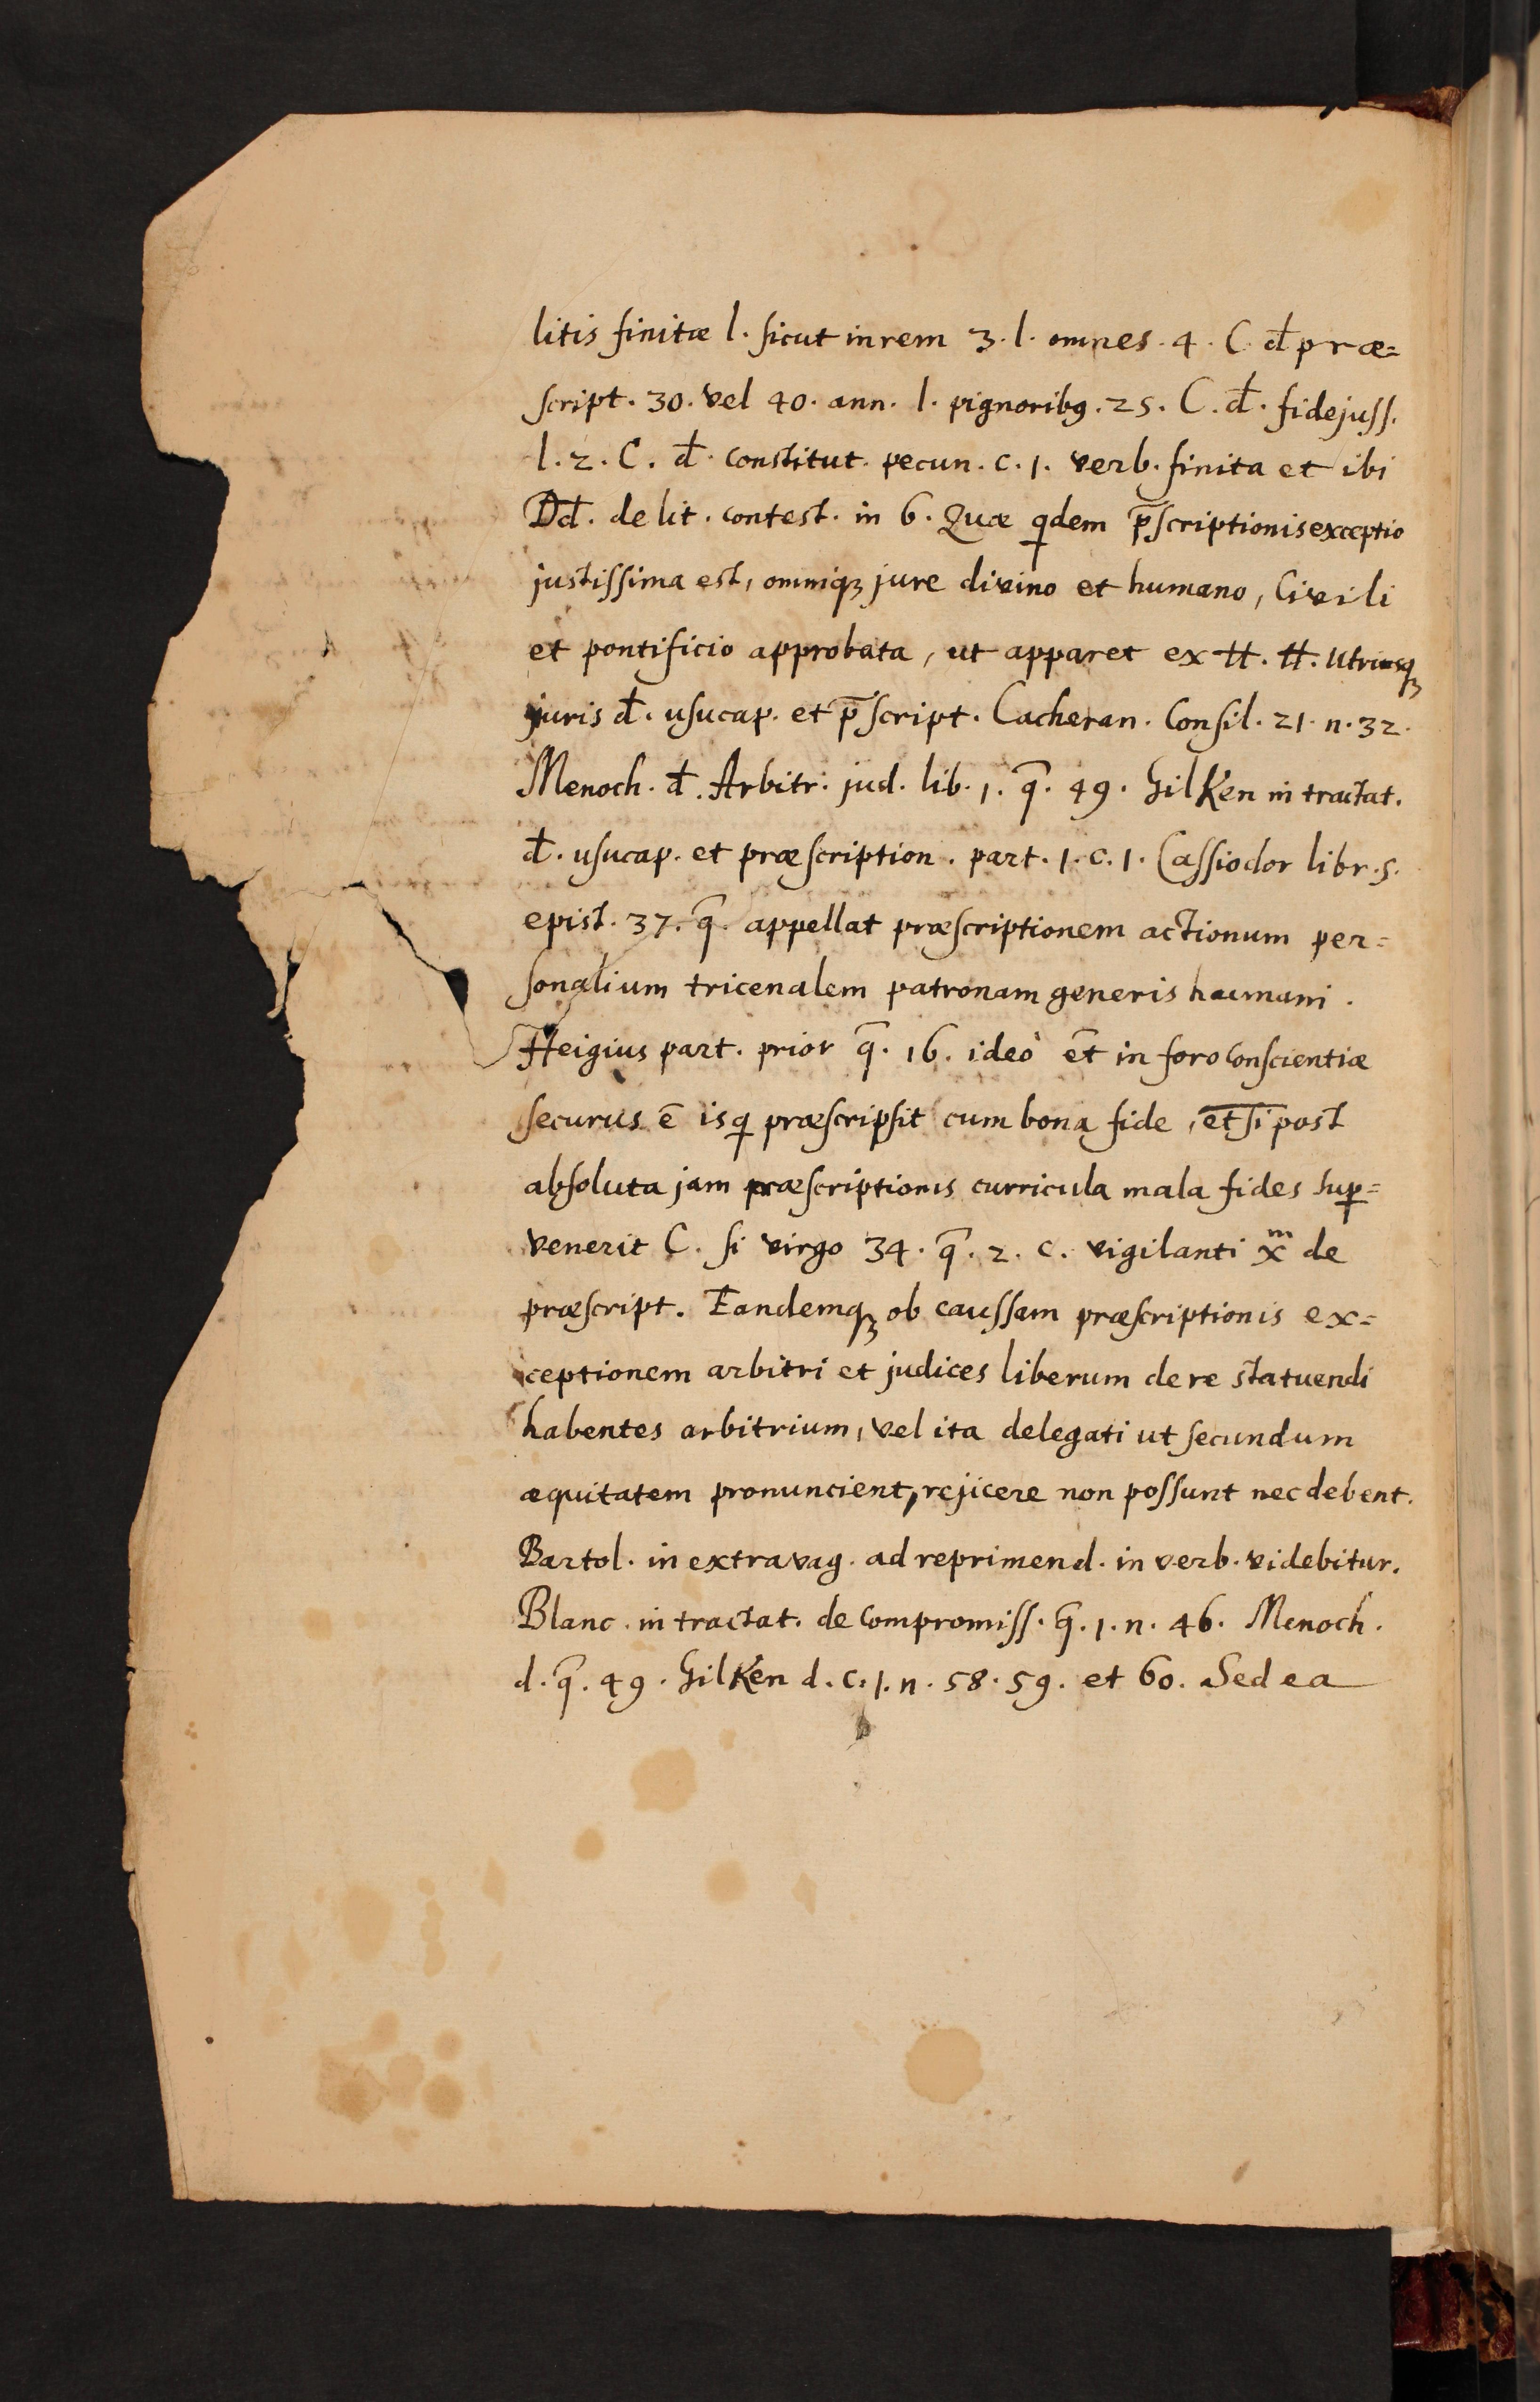 litis finitæ l. sicut in rem 3. l. omnes. 4. C. đ præ=
script. 30. vel 40. ann. l. pignoribꝰ. 25. C. đ. fidejuss.
l. 2. C. đ. constitut. pecun. c. 1. verb. finita et ibi
Dđ. de lit. contest. in 6. Quæ qdem p̄scriptionis exceptio
justissima est, omniqꝫ jure divino et humano, Civili
et pontificio approbata, ut apparet ex tt. tt. utriusqꝫ
juris đ. usucap. et p̄script. Cacheran. Consil. 21. n. 32.
Menoch. đ. Arbitr. jud. lib. 1. q̄. 49. Gilken in tractat.
đ. usucap. et præscription. part. 1. c. 1. Cassiodor libr. 5.
epist. 37. q̄. appellat præscriptionem actionum per=
sonalium tricenalem patronam generis humani.
Heigius part. prior q̄. 16. ideò et̄ in foro conscientiæ
securus ē is q præscripsit cum bona fide, et̄si post
absoluta jam præscriptionis curricula mala fides sup̱=
venerit C. si virgo 34. q̄. 2. c. vigilanti xᵐ de
præscript. Tandemqꝫ ob caussam præscriptionis ex=
ceptionem arbitri et judices liberum de re statuendi
habentes arbitrium, vel ita delegati ut secundum
æquitatem pronuncient, rejicere non possunt nec debent.
Bartol. in extravag. ad reprimend. in verb. videbitur.
Blanc. in tractat. de compromiss. q̄. 1. n. 46. Menoch.
d. q̄. 49. Gilken d. c. 1. n. 58. 59. et 60. Sed ea